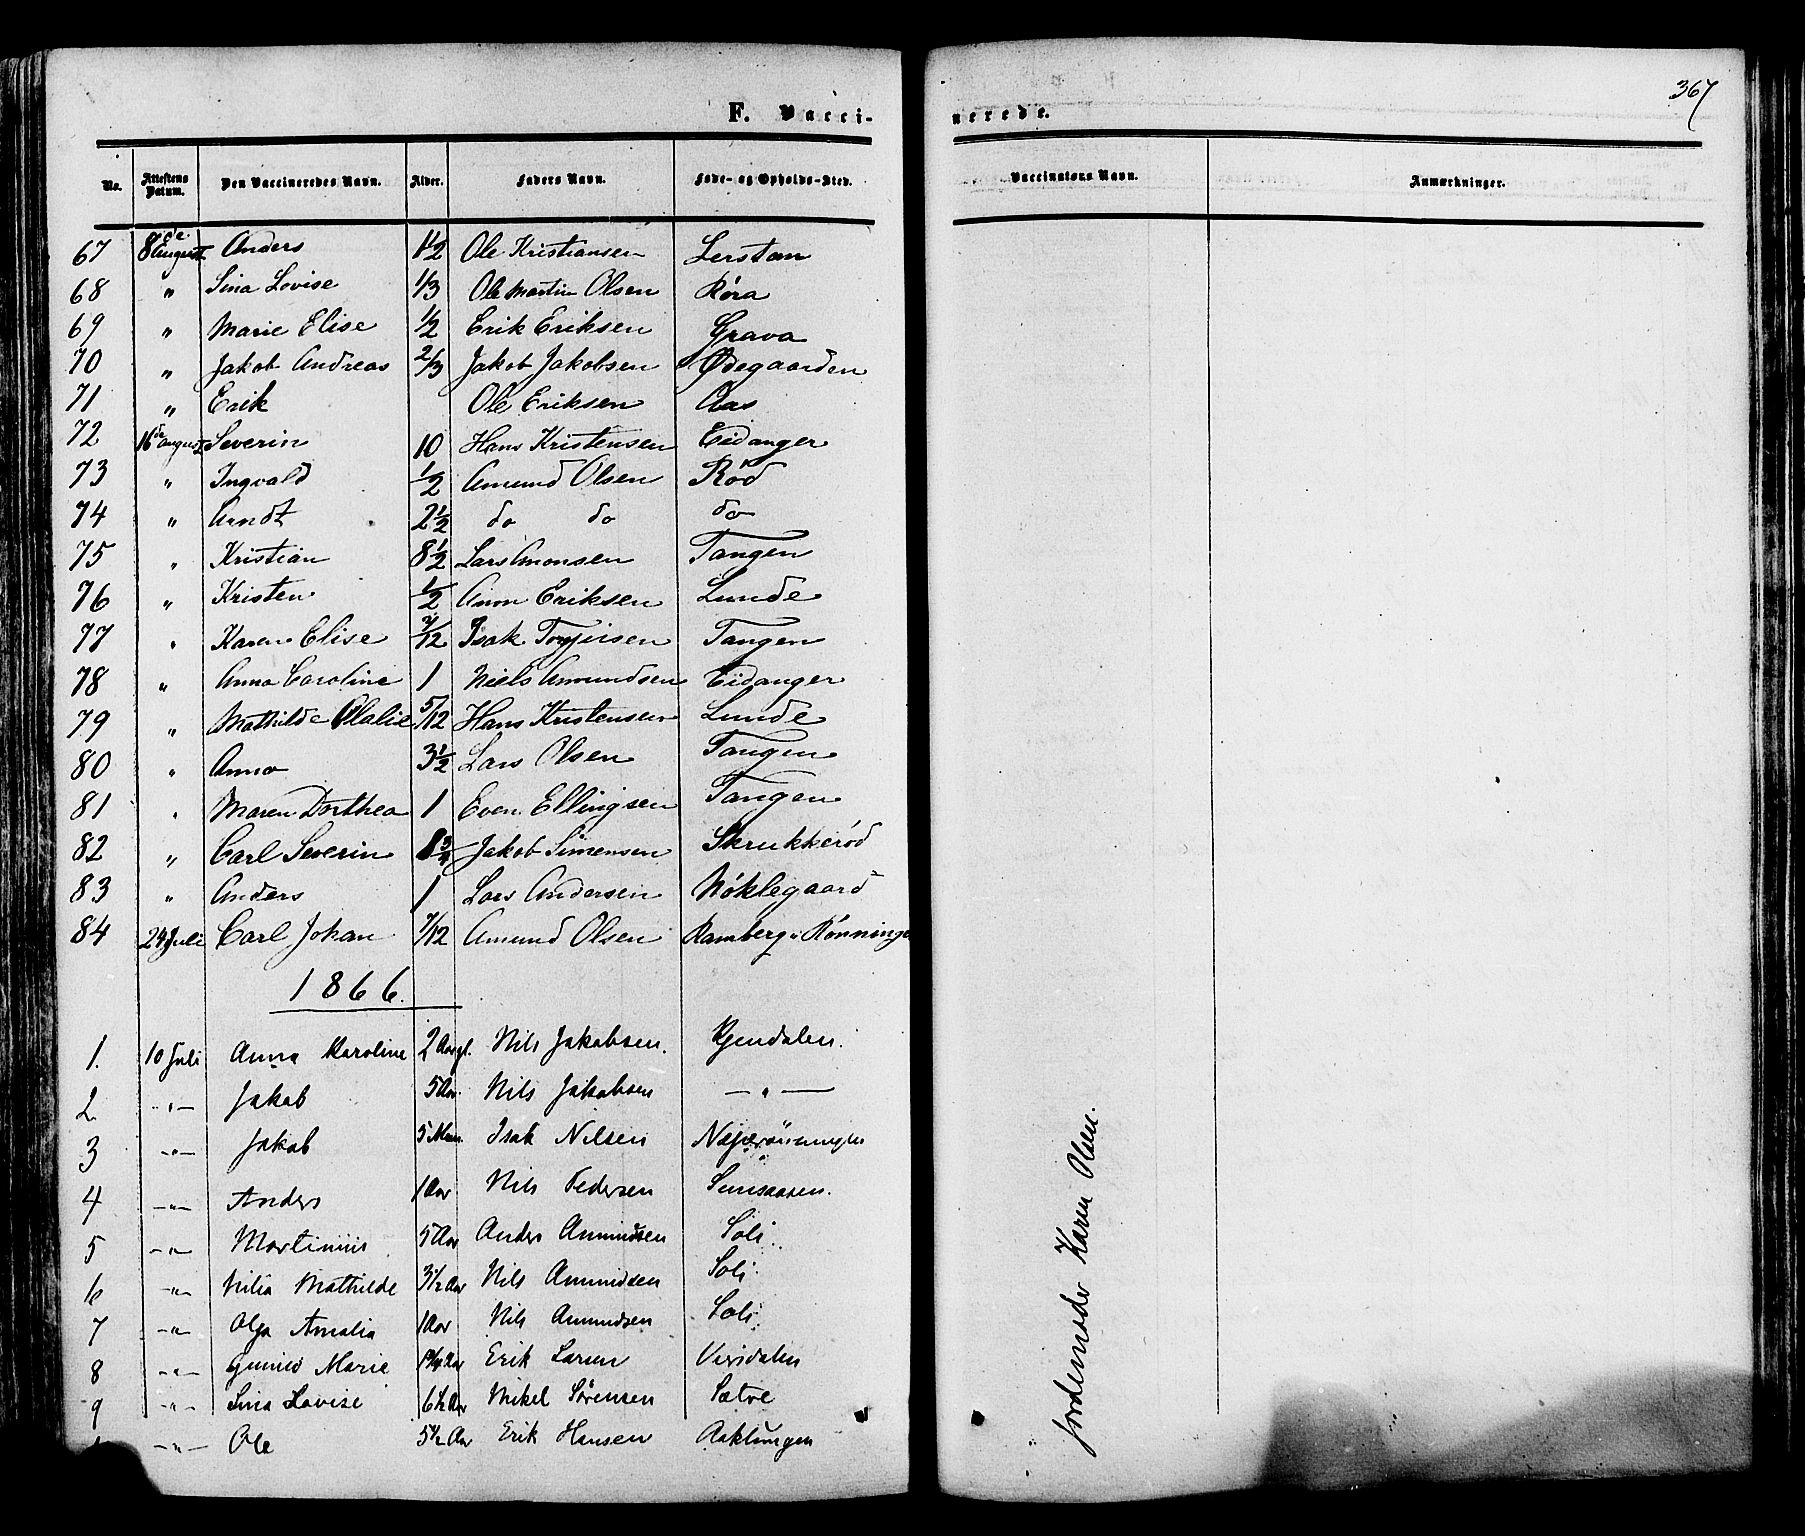 367
F. Vaccinerede.
No. Attestens Datum. Den Vaccineredes Navn. Alder. Faders Navn. Føde- og Opholds-Sted. Vaccinators Navn. Anmærkninger.
67 8de August Anders 1 1/2 Ole Kristiansen Lerstan
68 " Sina Lovise 1/3 Ole Martin Olsen Röra
69 " Marie Elise 1/2 Erik Eriksen Grava
70 " Jakob Andreas 2/3 Jakob Jakobsen Ødegaarden
71 " Erik Ole Eriksen Aas
72 16de August Severin 10 Hans Kristensen Eidanger
73 " Ingvald 1/2 Amund Olsen Röd
74 " Arndt 2 1/2 do do do
75 " Kristian 8 1/2 Lars Amonsen Tangen
76 " Kristen 1/2 Amon Eriksen Lunde
77 " Karen Elise /12 Isak Torjusen Tangen
78 " Anna Caroline 1 Niels Amundsen Eidanger
79 " Mathilde Olalie 5/12 Hans Kristensen Lunde
80 " Anna 3 1/2 Lars Olsen Tangen
81 " Maren Dorthea 1 Even Ellingsen Tangen
82 " Carl Severin 3/4 Jakob Simensen Skrukkeröd
83 " Anders 1 Lars Andersen Nöklegaard
84 24 Juli Carl Johan 7/12 Amund Olsen Ramberg Rönninge
1866.
1. 10 Juli Anna Karoline 2 Aargl. Nils Jakobsen. Gjendalen.
2 -"- Jakob 5 Aar. Nils Jakobsen — " —
3 -"- Jakob 5 Maan. Isak Nilsen
4 -"- Anders 1 Aar Nils Pedersen
5 -"- Martinius 5 Aar Anders Amundsen Soli.
6 -"- Nilia Mathilde 3 1/2 Aar Nils Amundsen Soli.
7 -"- Olga Amalia 1 Aar Nils Amundsen Soli.
8 -"- Marie Aar Erik Larsen
9 -"- Sina Lovise 6 1/2 Aar Mikel Sørensen Sætre
-"- Ole 5 1/2 Aar Erik Hansen Aaklungen
Jordemoder Karen Olsen.